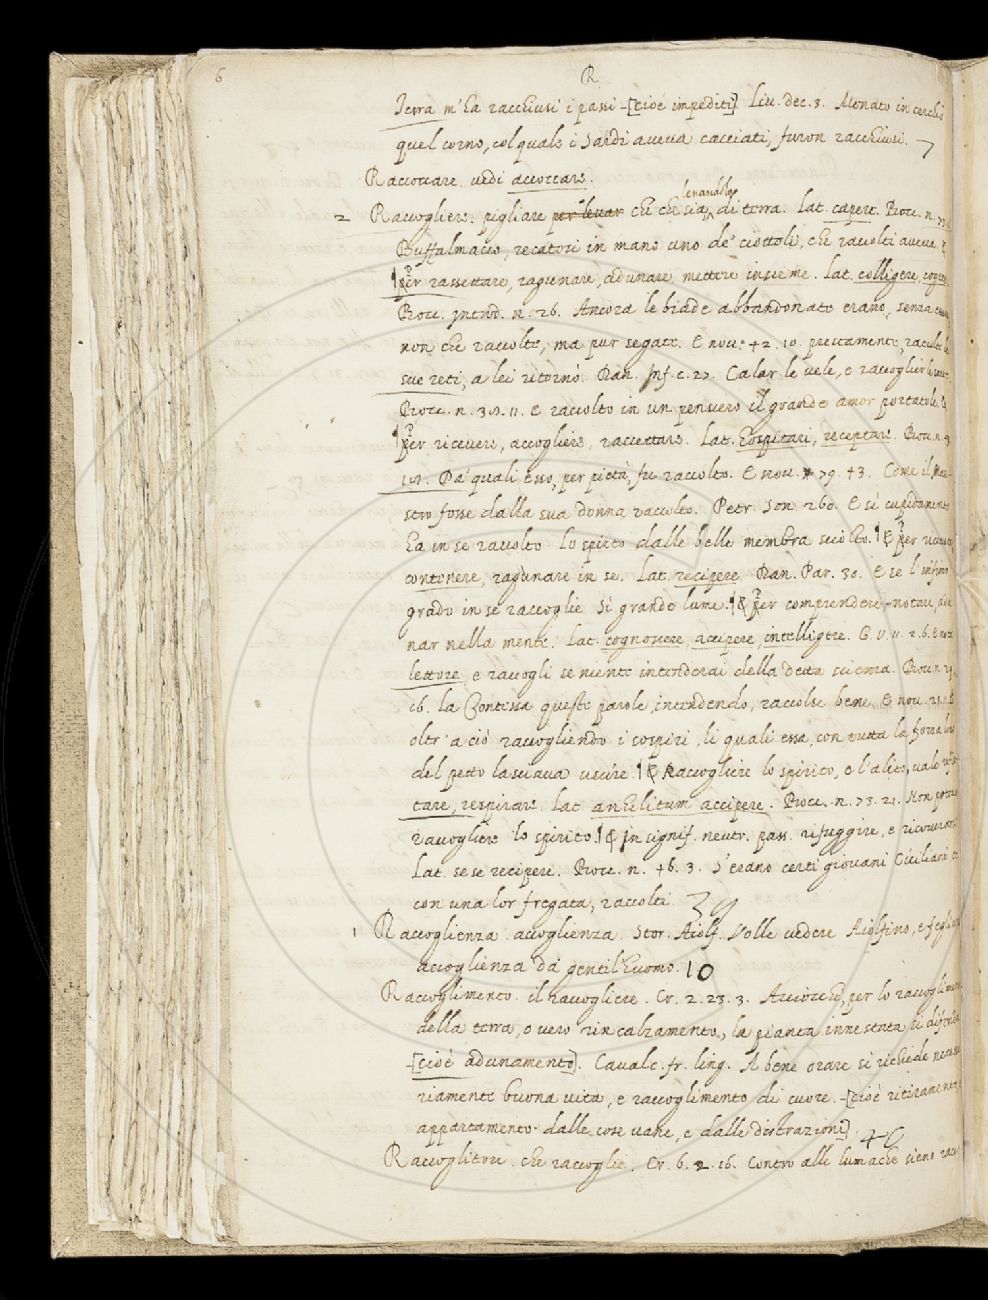 6 R
Terra m'ha racchiusi i passi -[cioè impediti]. Liv. dec. 3. Menato in cerchio
quel corno, col quale i Sardi aveva cacciati, furon racchiusi. 7
Raccoccare vedi accoccare.
2 Raccogliere. pigliare per levar che che sia levandolo di terra. Lat. capere. Bocc. n. 73.
Buffalmacco, recatosi in mano uno de' ciottoli, che raccolti aveva,
¶ Per rassettare, ragunare, adunare, mettere insieme. Lat. colligere, cogere.
Bocc. Introd. n. 26. Ancora le biade abbandonate erano, senza
non che raccolte, ma pur segate. E nov. 42. 10. prestamente, raccolte le
sue reti, a lei ritornò. Dan. Inf. c. 27. Calar le vele, e raccoglier le
Bocc. n. 38. 11. E raccolto in un pensiero il grande amor portatole.
¶ Per ricevere, accogliere, raccettare. Lat. hospitari, receptare. Bocc. n.
Da' quali esso, per pietà, fu raccolto. E nov. 79. 43. Come il Mae-
stro fosse dalla sua donna raccolto. Petr. Son. 260. E sì cupidamente
ha in se raccolto lo spirto dalle belle membra sciolto. ¶ E per
contenere, ragunare in se. Lat. recipere. Dan. Par. 30. E se l'infimo
grado in se raccoglie sì grande lume. ¶ & Per comprendere, notare,
nar nella mente. Lat. cognoscere, accipere, intelligere. G. V. 11. 2. 6.
lettore, e raccogli se niente intenderai della detta scienza. Bocc. n.
16. La Contessa queste parole intendendo, raccolse bene. E nov.
oltr'a ciò raccogliendo i sospiri, li quali essa, con tutta la forza
del petto lasciava uscire. ¶ E Raccogliere lo spirito, o l'alito, vale
tare, respirare. Lat. anhelitum accipere. Bocc. n. 73. 21. Non
raccogliere lo spirito. ¶ & In signif. neutr. pass. rifuggire, e ricoverarsi
Lat. sese recipere. Bocc. n. 46. 3. S'erano certi giovani Ciciliani
con una lor fregata, raccolti. 39
1 Raccoglienza. accoglienza. Stor. Aiolf. Volle vedere Aiolfino,
accoglienza da gentil'huomo. 10
Raccoglimento. il raccogliere. Cr. 2. 23. 3. Acciocchè, per lo
della terra, o vero rincalzamento, la pianta innestata si
-[cioè adunamento]. Cavalc. fr. ling. A bene orare si richiede
riamente buona vita, e raccoglimento di cuore. -[cioè ritiramento,
appartamento dalle cose vane, e dalle distrazioni]. 46
Raccoglitore. che raccoglie. Cr. 6. 2. 16. Contro alle lumache sieno